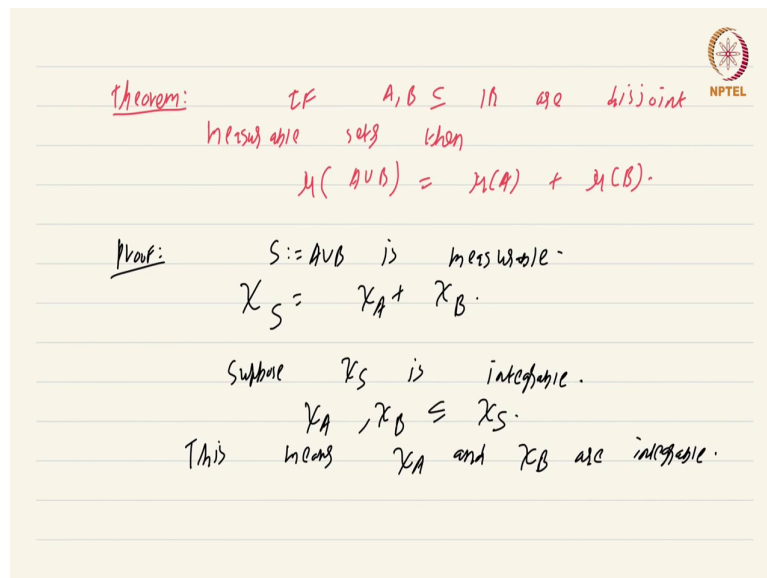 NPTEL
Theorem: If A, B ⊆ ℝ are disjoint
measurable sets then
μ(A∪B) = μ(A) + μ(B).
Proof: S := A∪B is measurable.
χ_S = χ_A + χ_B.
Suppose χ_S is integrable.
χ_A, χ_B ≤ χ_S.
This means χ_A and χ_B are integrable.